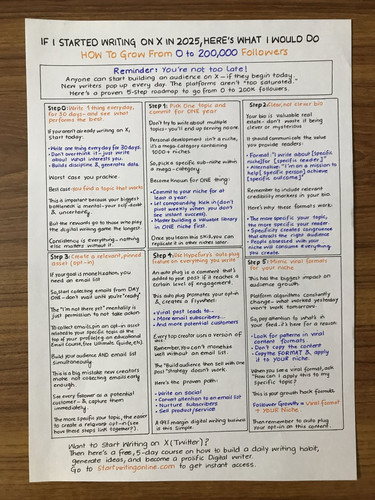 IF I STARTED WRITING ON X IN 2025, HERE'S WHAT I WOULD DO
HOW TO Grow From 0 to 200,000 Followers
Reminder: You're not too late!
Anyone can start building an audience on X - if they begin today.
New writers pop up every day. The platforms aren't "too saturated."
Here's a proven 5-step roadmap to go from 0 to 200K Followers.
Step 0: Write 1 thing everyday,
for 30 days - and see what
performs the best.
If you aren't already writing on X,
start today:
• Write one thing everyday for 30 days.
• Don't overthink it - just write
about what interests you.
• Builds discipline & generates data.
Worst case you practice.
Best case: you find a topic that works
This is important because your biggest
bottleneck is mental - your self-doubt
& uncertainty.
But the reason to go to those who play
the digital writing game the longest.
Consistency is everything - nothing
else matters without it.
Step 1: Pick One topic and
commit for ONE year
Don't try to write about multiple
topics - you'll end up serving no one.
Personal development isn't a niche,
it's a mega-category containing
1000+ niches.
So, pick a specific sub-niche within
a mega-category.
Become Known for ONE thing:
• Commit to your niche for at
least a year.
• Let compounding kick in (don't
pivot every week when you
don't see instant success).
• Master building a Valuable library
in ONE niche first.
Once you learn this skill, you can
replicate it in other niches later.
Step 2: Clear, not clever bio
Your bio is valuable real
estate - don't waste it being
clever or mysterious
It should communicate the value
you provide readers:
• Format: "I write about [specific
niche] for [specific reader]."
• Alternative: "I'm on a mission to
help [specific person] achieve
[specific outcome]"
Remember to include relevant
credibility markers in your bio.
Here's why these formats work:
• The more specific your topic,
the more specific your reader
• Specificity creates congruence
that attracts the right audience
• People obsessed with your
niche will consume everything
you create.
Step 3: Create a relevant, pinned
asset (opt-in)
If your goal is monetization, you
need an email list
So, start collecting emails from DAY
ONE - don't wait until you're "ready"
The "I'm not there yet" mentality is
just permission to not take action
To collect emails, pin an opt-in asset
related to your specific topic at the
top of your profile (eg. an educational
Email Course, free Ultimate Guide, etc).
Build your audience AND email list
simultaneously.
This is a big mistake new creators
make: not collecting emails early
enough.
See every follower as a potential
customer - & capture them
immediately.
The more specific your topic, the easier
to create a relevant opt-in (see
how these steps link together?).
Step 4: Use Hypefury's auto plug
feature on everything you write
An auto plug is a comment that's
added to your post if it reaches a
certain level of engagement.
This auto plug promotes your opt-in
& creates a flywheel:
• Viral posts lead to...
• More email subscribers...
• And more potential customers
Every top creator uses a version of
this.
Remember, You can't monetize
well without an email list.
The "Build audience then sell with one
post" strategy doesn't work.
Here's the proven path:
• Write on social
• Convert attention to an email list
• Nurture subscribers
• Sell product/service
A 99% margin digital writing business
it is this simple.
Step 5: Mimic viral formats
for your niche
This has the biggest impact on
audience growth.
Platform algorithms constantly
change - what worked yesterday
won't work tomorrow.
So, pay attention to what's in
your feed. It's there for a reason
• Look for patterns in viral
content formats
• Don't copy the content
• Copy the FORMAT & apply
it to YOUR niche.
When you see a viral format, ask
"How can I apply this to my
specific topic?"
This is your growth hack formula:
Followers Growth = Viral format
+ YOUR Niche
Then remember to auto plug
your opt-in on this content.
Want to Start Writing on X (Twitter)?
Then here's a free, 5-day course on how to build a daily writing habit,
generate ideas, and become a prolific Digital writer.
Go to Startwritingonline.com to get instant access.